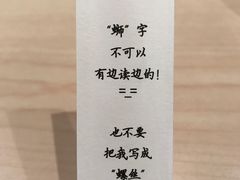 “蛳”字
不可以
有边读边的！
=_=
也不要
把我写成
“螺丝”